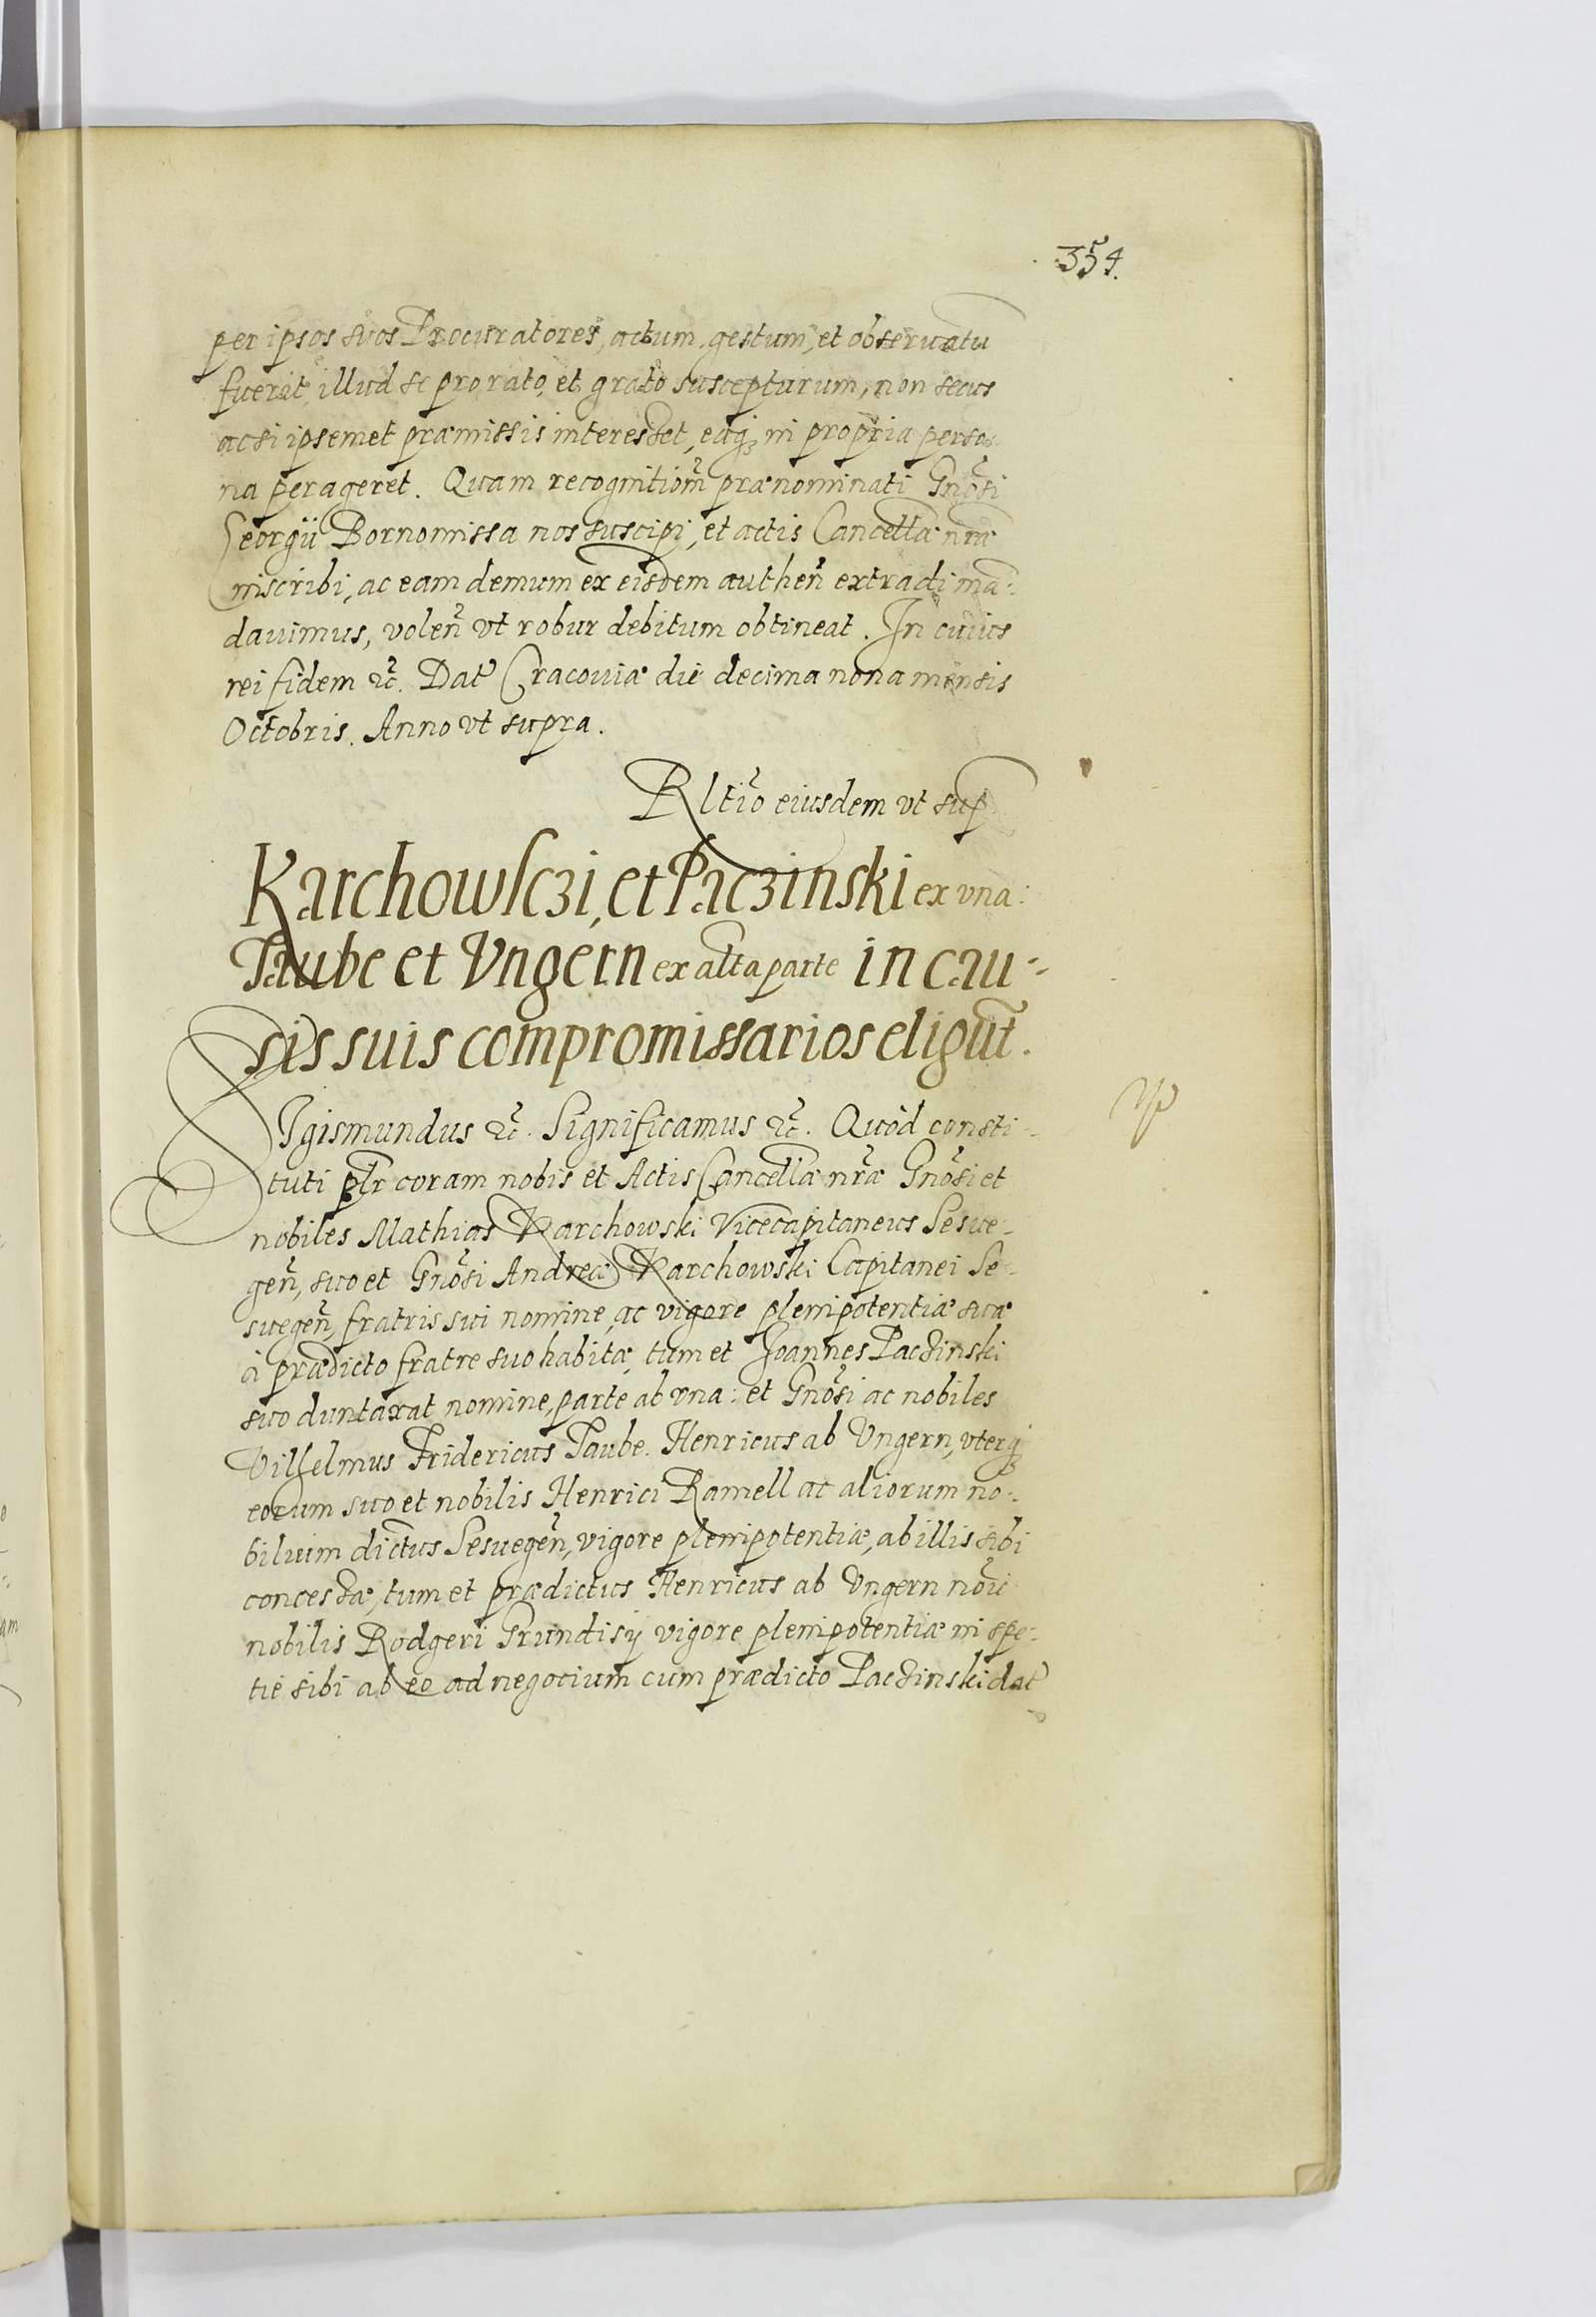 354.
per ipsos suos Procuratores, actum, gestum, et obseruatũ
fuerit, illud se pro rato, et grato suscepturum, non secus
ac si ipsemet præmissis interesset, eaq; in propria perso-
na perageret. Quam recognitiom̃ prænominati Gnõsi
Georgii Bornomissa nos suscipi, et actis Cancellæ nr̃æ
inscribi, ac eam demum ex eisdem authen̄ extradi mã-
dauimus, volen̄ vt robur debitum obtineat. In cuius
rei fidem &c̃. Dat̃ Cracouiæ die decima nona mensis
Octobris. Anno vt supra.
Rltĩo eiusdem vt sup
Karchowsczi, et Paczinski ex vna:
Taube et Vngern ex alta parte in cau-
sis suis compromissarios eligũt.
Sigismundus &c̃. Significamus &c̃. Quòd consti-
tuti plr̃ coram nobis et Actis Cancellæ nr̃æ Gnõsi et
nobiles Mathias Karchowski Vicecapitaneus Sesue-
gen̄, suo et Gnõsi Andreæ Karchowski Capitanei Se-
suegen̄, fratris sui nomine, ac vigore plenipotentiæ suæ
à prædicto fratre suo habitæ, tum et Joannes Paczinski
suo duntaxat nomine, parte ab vna: et Gnõsi ac nobiles
Vilhelmus Fridericus Taube. Henricus ab Vngern, vterq;
eorum suo et nobilis Henrici Ramell ac aliorum no-
bilium dictus Sesuegen̄, vigore plenipotentiæ, ab illis sibi
concessæ, tum et prædictus Henricus ab Vngern nõie
nobilis Rodgeri Grundisÿ vigore plenipotentiæ in spe-
tie sibi ab eo ad negocium cum prædicto Paczinski dat̃